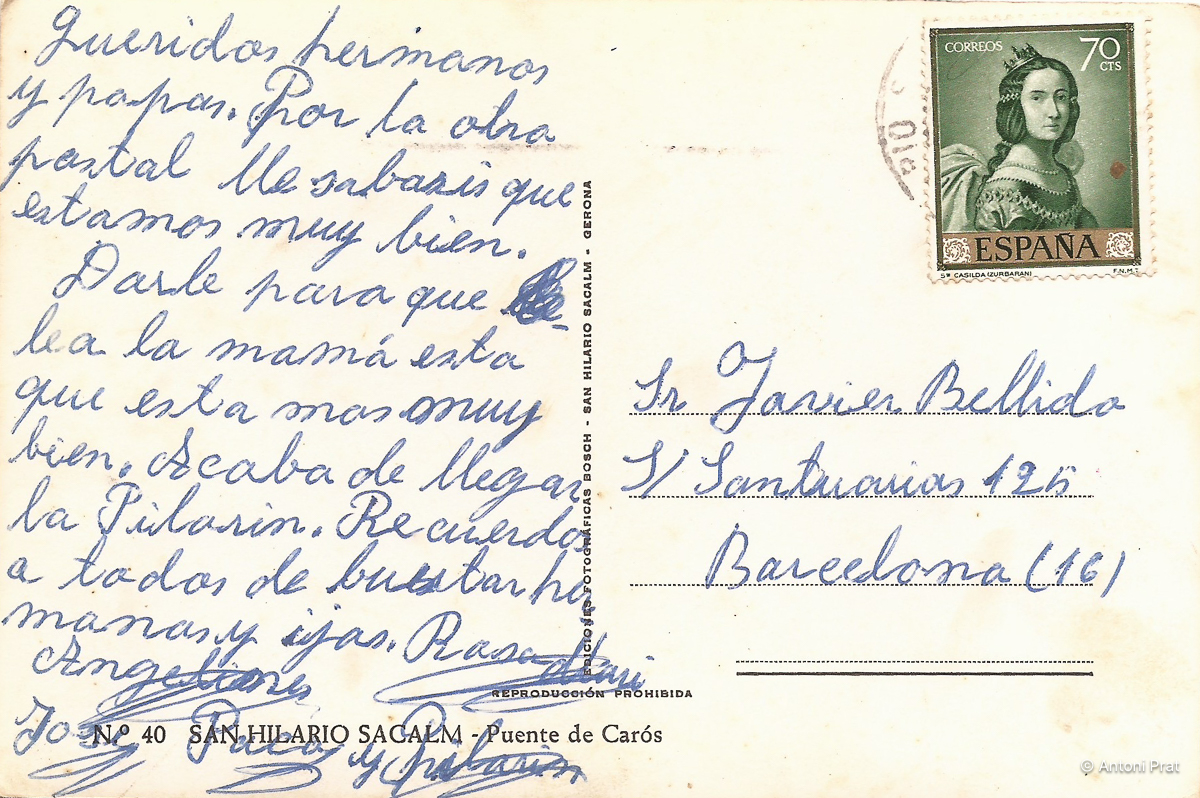 Queridos hermanos
y papas. Por la otra
postal lle sabaris que
estamos muy bien.
Darle para que le
lea la mamá esta
que esta mos muy
bien. Acaba de llegar
la Pilarin. Recuerdos
a todos de buestar ha
manas y ijas. Rosa Mari
Angelines
José Paco y Pilarin
Nº 40 SAN HILARIO SACALM - Puente de Carós
EDICIONES FOTOGRÁFICAS BOSCH - SAN HILARIO SACALM - GERONA
REPRODUCCIÓN PROHIBIDA
CORREOS 70 CTS
ESPAÑA
Sª CASILDA (ZURBARAN) F.N.M.T
DIC
Sr Javier Bellido
S/ Santuarias 125
Barcelona (16)
© Antoni Prat